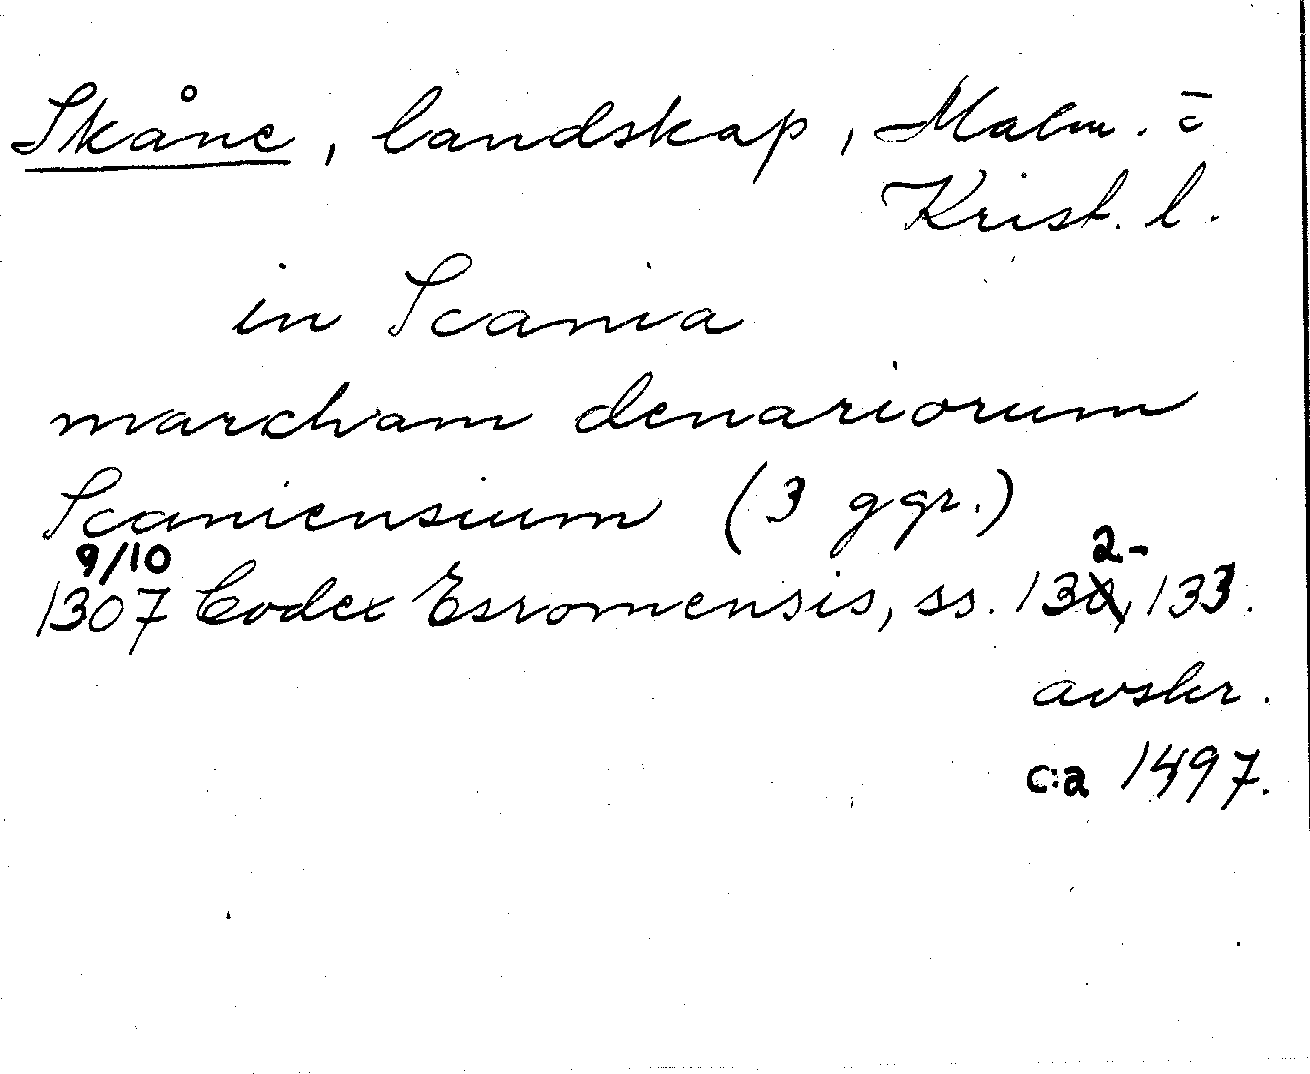 Skåne, landskap, Malm. o
Krist. l.
in Scania
marcham denariorum
Scaniensium (3 ggr.)
9/10
1307 Codex Esromensis, ss. 132-133.
avskr.
c:a 1497.